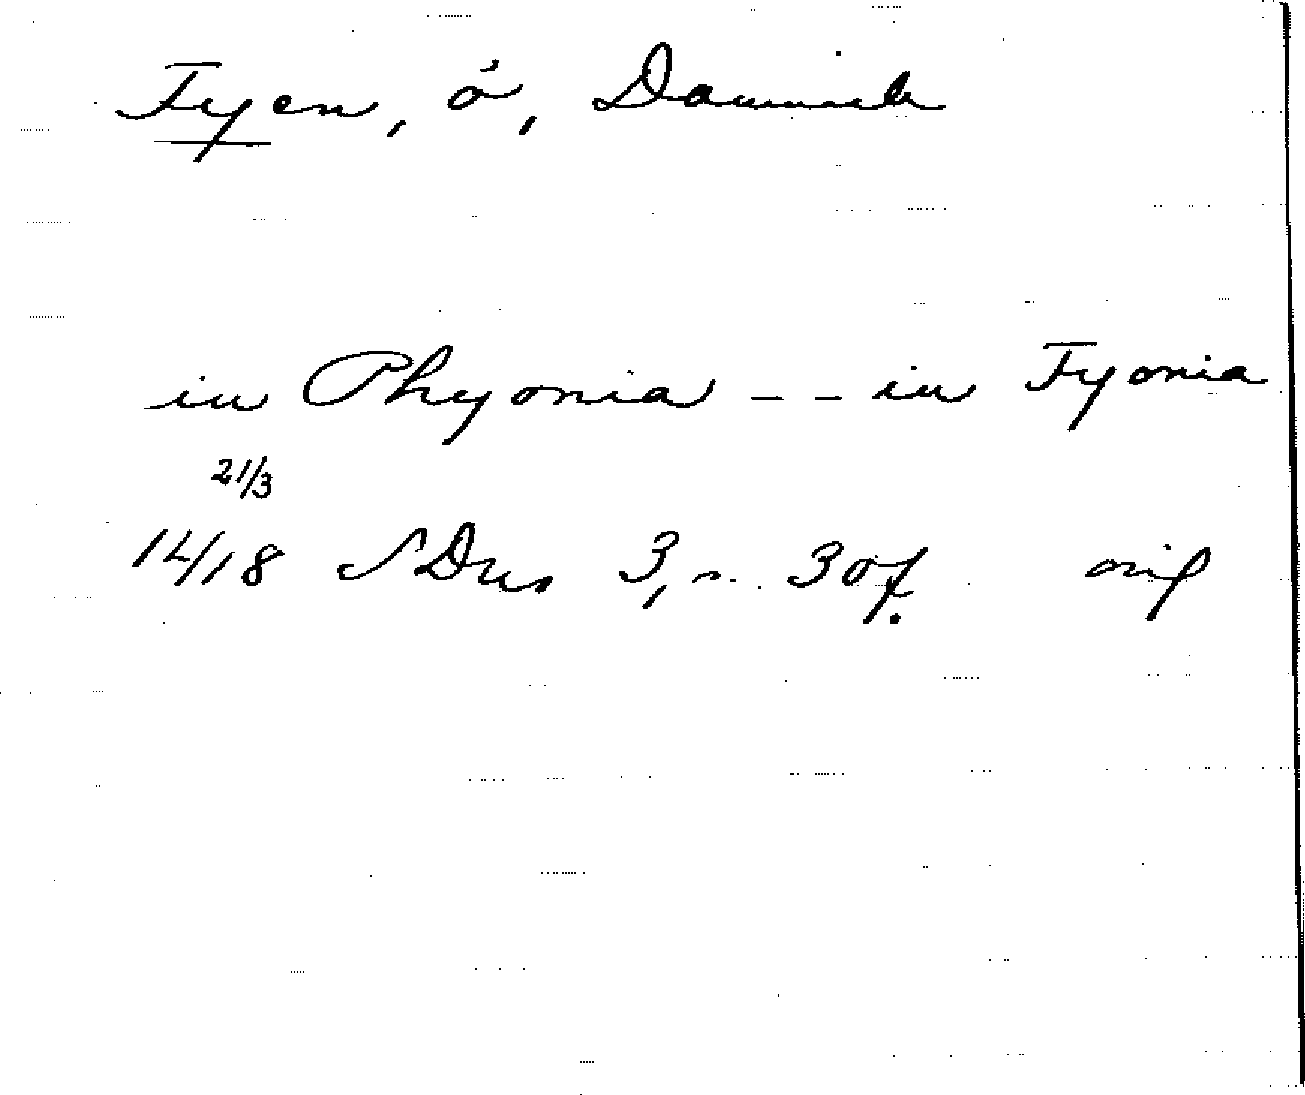 Fyen, ö, Danmark
in Phyonia -- in Fyonia
21/3
1418 SDns 3, s. 307. orig